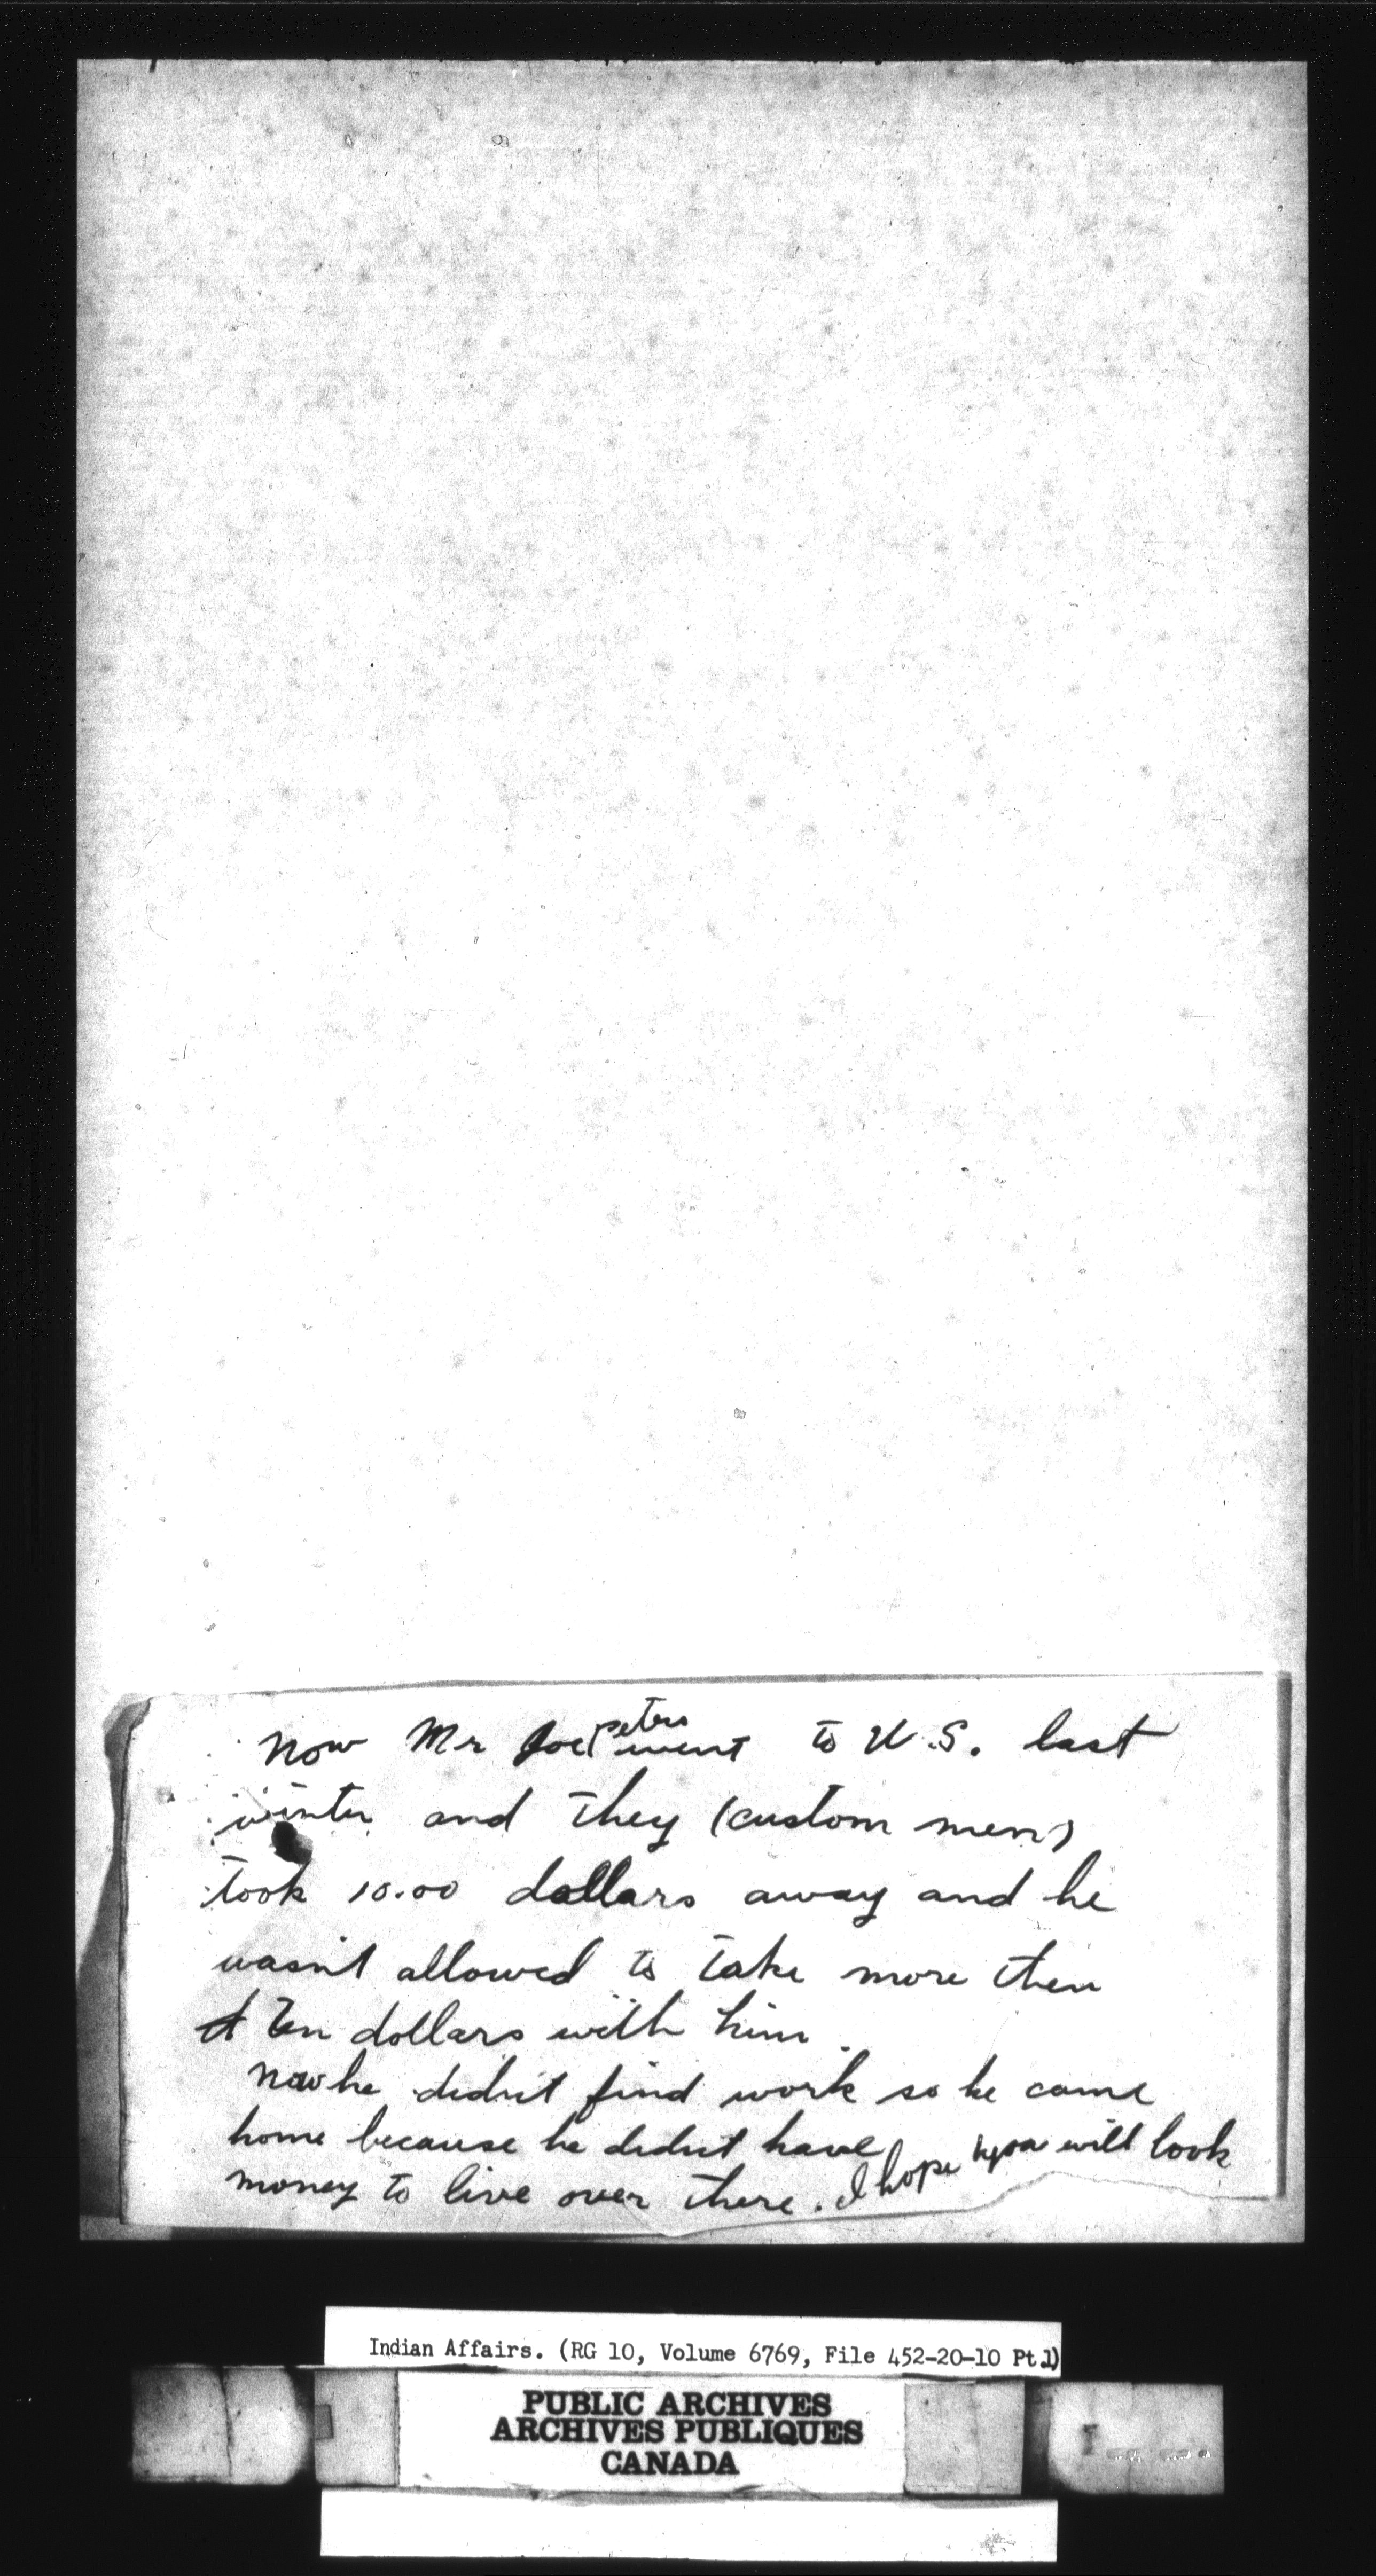 Now Mr Joe Peters went to U.S. last
winter and they (custom men)
took 10.00 dollars away and he
wasn't allowed to take more then
ten dollars with him.
Now he didn't find work so he came
home because he didn't have
money to live over there. I hope you will look
Indian Affairs. (RG 10, Volume 6769, File 452-20-10 Pt.1)
PUBLIC ARCHIVES
ARCHIVES PUBLIQUES
CANADA